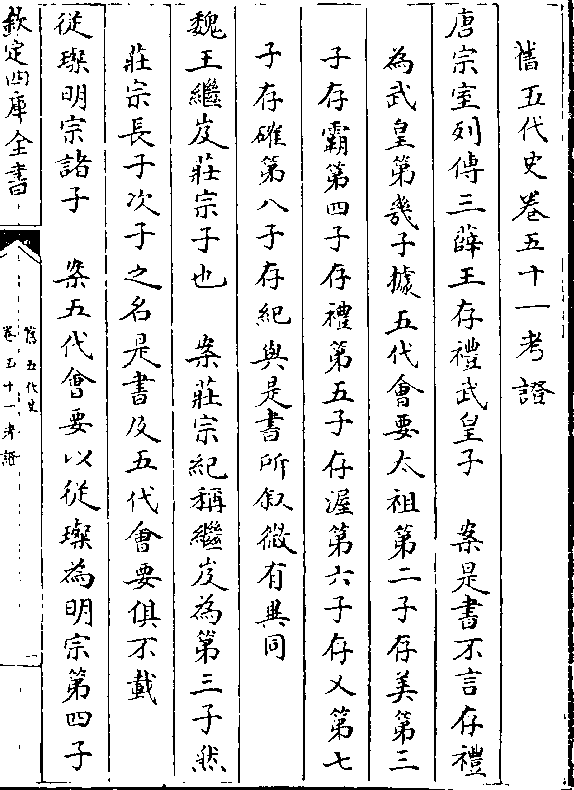 舊五代史卷五十一考證
唐宗室列傳三薛王存禮武皇子　案是書不言存禮
為武皇第幾子據五代會要太祖第二子存美第三
子存霸第四子存禮第五子存渥第六子存乂第七
子存確第八子存紀與是書所叙微有異同
魏王繼岌莊宗子也　案莊宗紀稱繼岌為第三子然
莊宗長子次子之名是書及五代會要俱不載
從璨明宗諸子　案五代會要以從璨為明宗第四子
欽定四庫全書
舊五代史
卷五十一考證